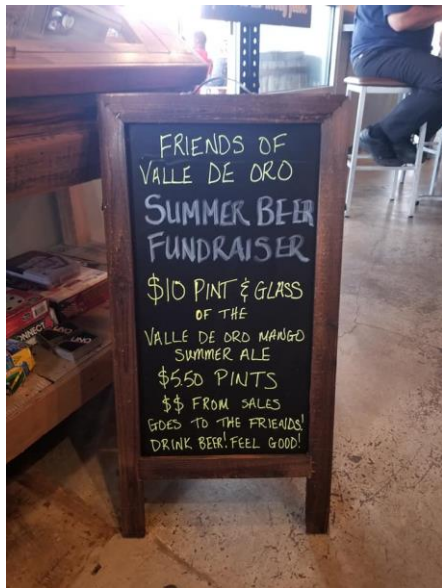 FRIENDS OF
VALLE DE ORO
SUMMER BEER
FUNDRAISER
$10 PINT & GLASS
OF THE
VALLE DE ORO MANGO
SUMMER ALE
$5.50 PINTS
$$ FROM SALES
GOES TO THE FRIENDS!
DRINK BEER! FEEL GOOD!
CONNECT
UNO
UNO